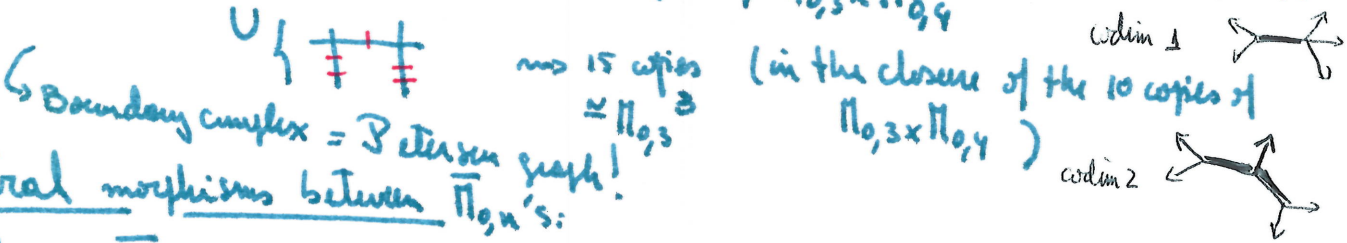 codim 1
U {
⇝ 15 copies (in the closure of the 10 copies of
≃ M_{0,3}^3 M_{0,3} × M_{0,4} )
↳ Boundary complex = Petersen graph!
codim 2
ral morphisms between \overline{M}_{0,n}'s: